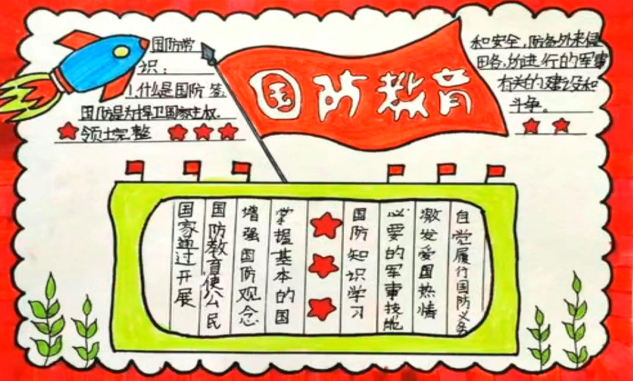 国防教育
国防常
识：
1.什么是国防 答
国防是为捍卫国家主权.
领土完整
和安全,防备外来侵
田各,所进行的军事
有关的建设和
斗争。
国家通过开展
国防教育使公民
增强国防观念
掌握基本的国
国防知识学习
必要的军事技地
激发爱国热情
自觉履行国防义务